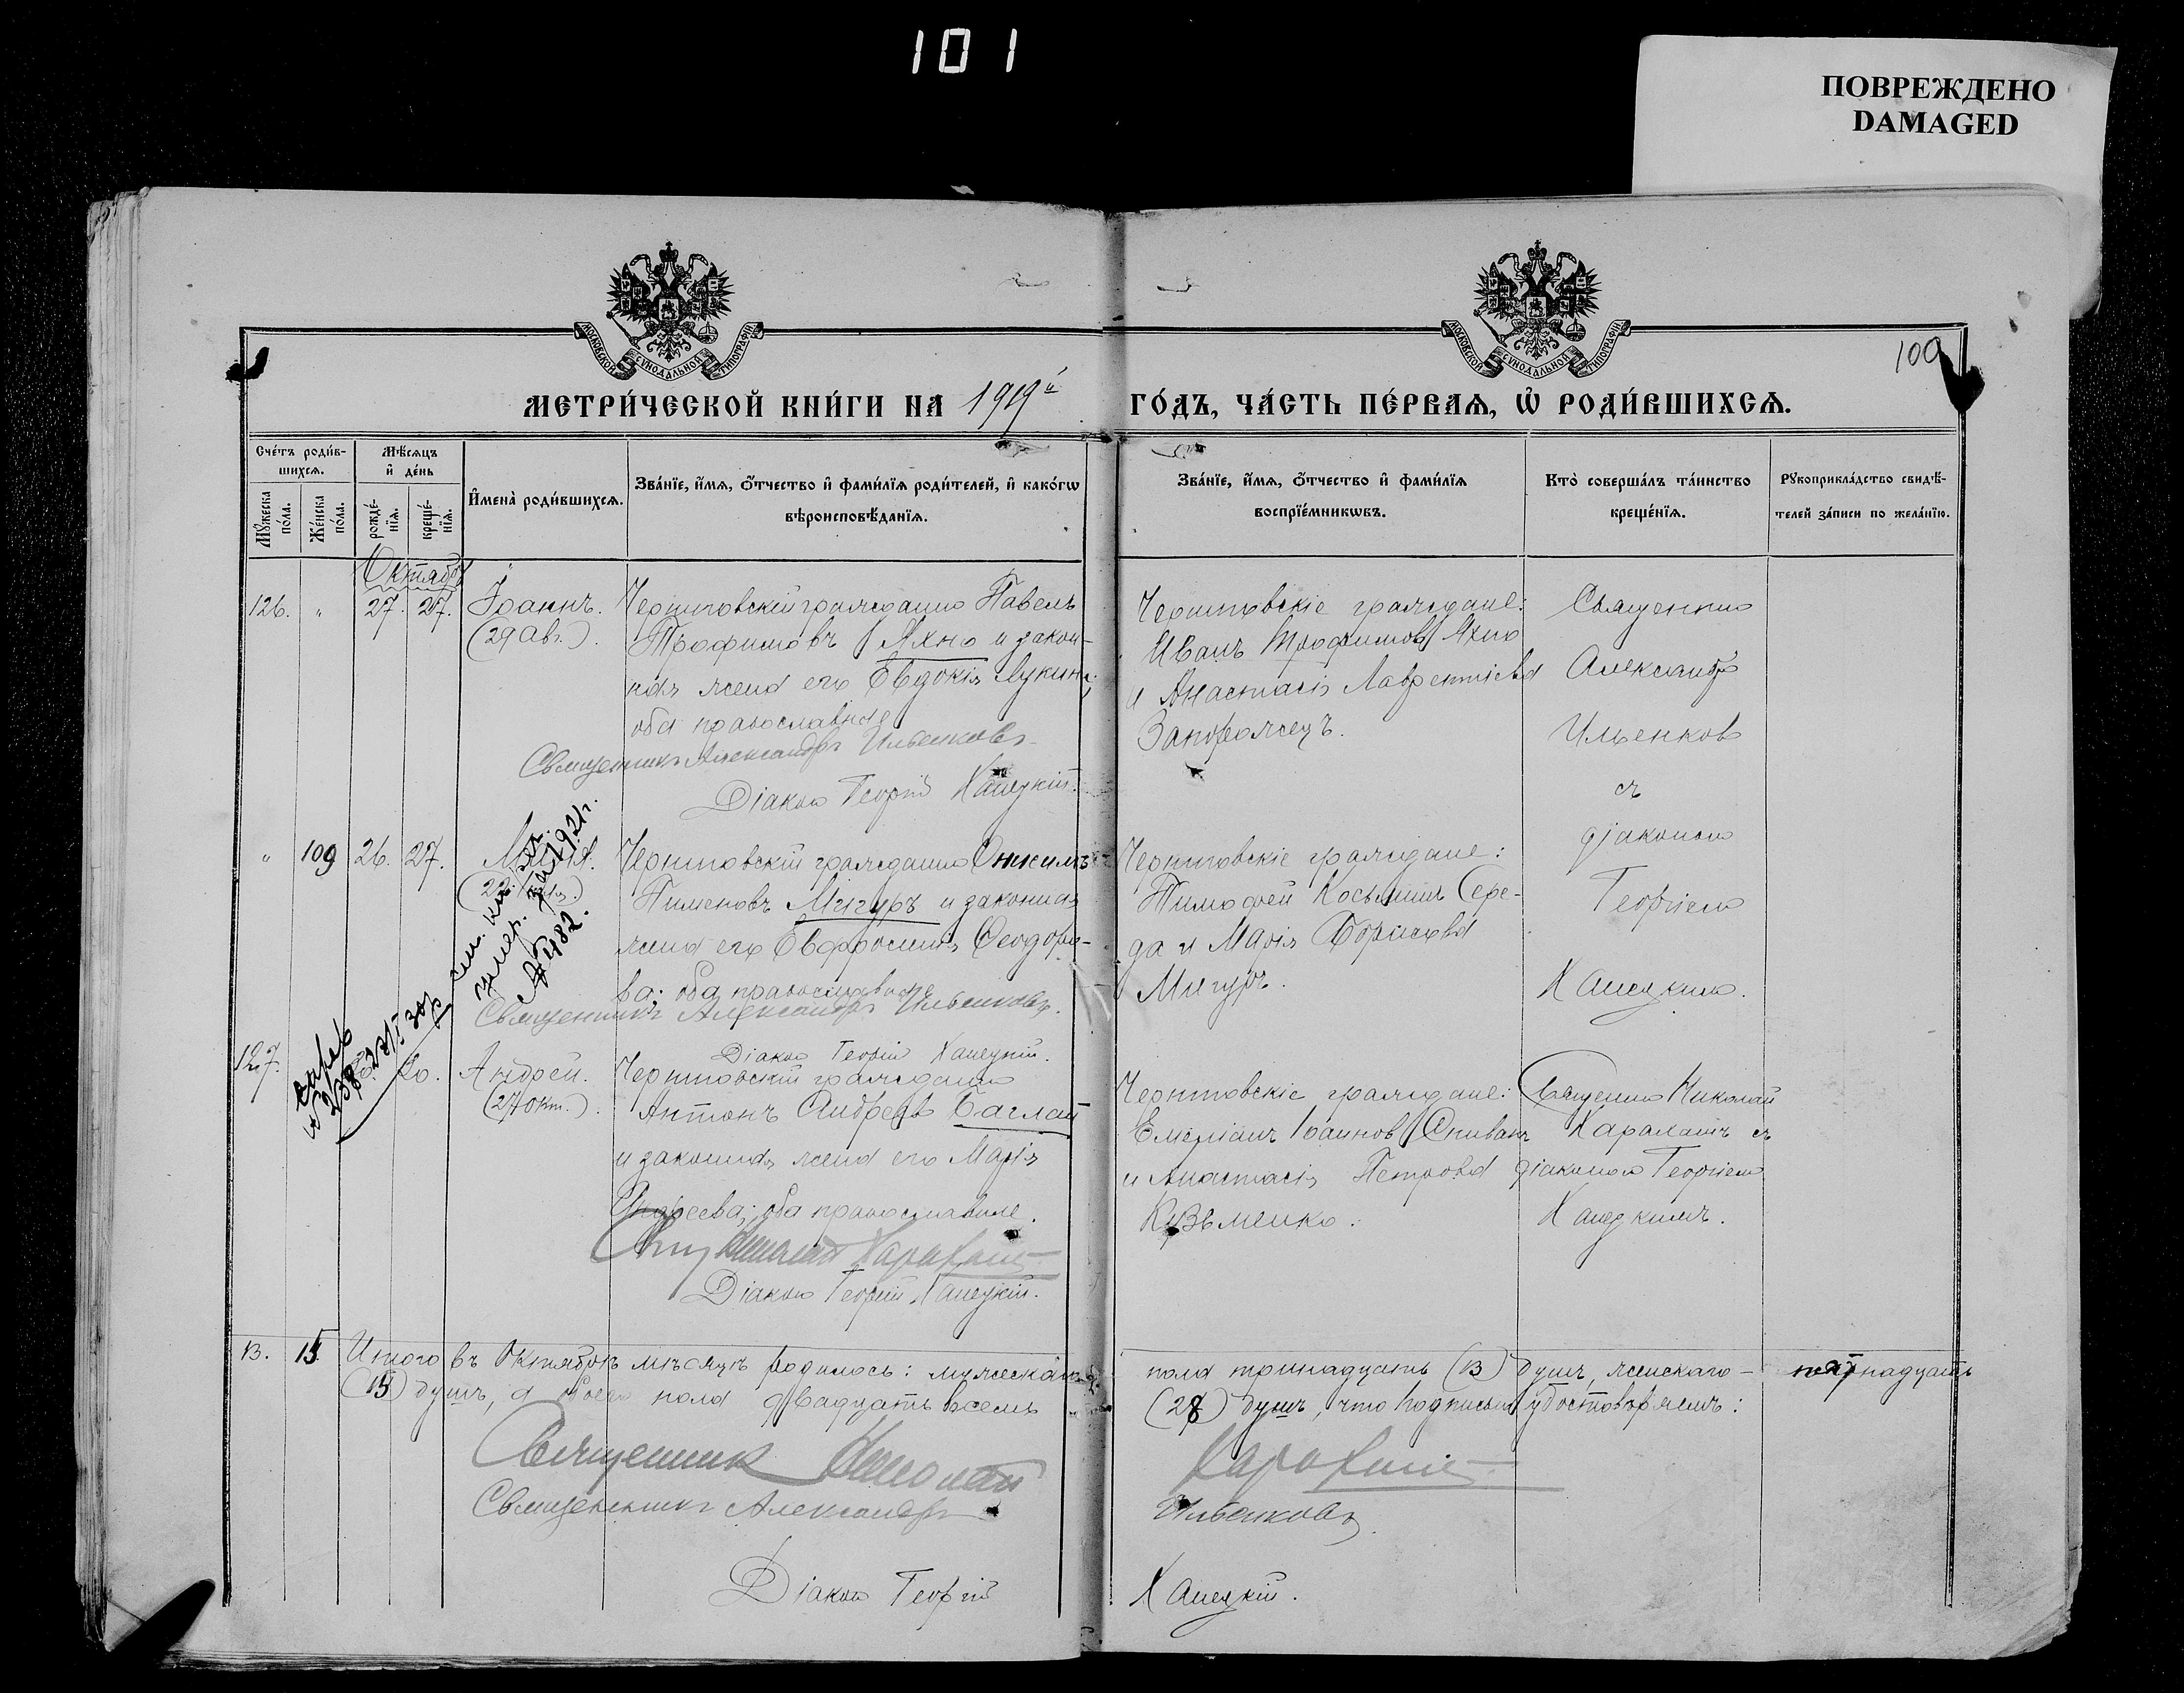 101
ПОВРЕЖДЕНО
DAMAGED
109
МОСКОВСКОЙ СУНОДАЛЬНОЙ ТИПОГРАФІИ
МОСКОВСКОЙ СУНОДАЛЬНОЙ ТИПОГРАФІИ
МЕТРИ́ЧЕСКОЙ КНИ́ГИ НА 1919й ГО́ДЪ, ЧА́СТЬ ПЕ́РВАѦ, Ѡ҆ РОДИ́ВШИХСѦ.
Сче́тъ роди́в-
шихсѧ.
Мꙋ́жеска
по́ла.
Же́нска
по́ла.
Мѣ́сѧцъ
и҆ де́нь
рожде́-
нїѧ.
креще́-
нїѧ.
И҆мена̀ роди́вшихсѧ.
Зва́нїе, и҆́мѧ, ѻ҆́тчество и҆ фами́лїѧ роди́телей, и҆ како́гѡ
вѣроисповѣ́данїѧ.
Зва́нїе, и҆́мѧ, ѻ҆́тчество и҆ фами́лїѧ
воспрїе́мникѡвъ.
Кто̀ соверша́лъ та́инство
креще́нїѧ.
Рꙋкоприкла́дство свидѣ́-
телей за́писи по жела́нїю.
Октябрь
126. " 27. 27. Іоаннъ.
(29 Авг.).
Черниговскій гражданинъ Павелъ
Трофимовъ Яхно и закон-
ная жена его Евдокія Лукина;
оба православные
Священникъ Александръ Ильенковъ
Діаконъ Георгій Ханецкій.
Черниговскіе граждане:
Иванъ Трофимовъ Яхно
и Анастасія Лаврентіева
Запорожецъ.
Священникъ
Александръ
Ильенков
съ
діакономъ
Георгіемъ
Ханецкимъ.
" 109 26. 27.
Черниговскій гражданинъ Онисимъ
Пименовъ Мигуръ и законная
жена его Евфросинія Ѳеодоро-
ва; оба православные
Священникъ Александръ Ильенковъ.
Діаконъ Георгій Ханецкій.
Черниговскіе граждане:
Тимофей Косьминъ Сере-
да и Марія Борисова
Мигуръ.
умер. 1921г.
№ 482.
127. 20. Андрей.
(27 Окт.).
Черниговскій гражданинъ
Антонъ Андреевъ Баглай
и законная жена его Марія
Андреева; оба православные.
Николай Карахинъ
Діаконъ Георгій Ханецкій.
Черниговскіе граждане:
Емеліанъ Іоанновъ Спивакъ
и Анастасія Петрова
Кузьменко.
Священникъ Николай
съ
діакономъ Георгіемъ
Ханецкимъ.
13. 15. Итого въ Октябрѣ мѣсяцѣ родилось: мужескаго пола тринадцать (13) душъ, женскаго - пятнадцать
(15) душъ, а обоего пола двадцать восемь (28) душъ, что подписомъ удостовѣряемъ:
Священникъ Николай
Священникъ Александръ Ильенковъ
Діаконъ Георгій Ханецкій.